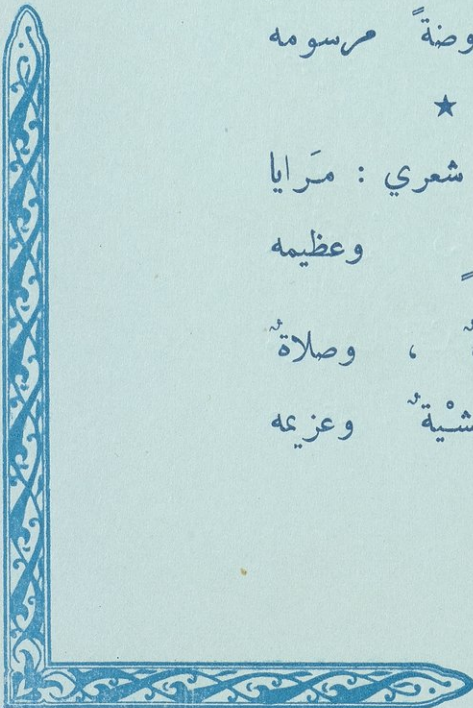 مرسومه
★
شعري : مَرايا
وعظيمه
، وصلاةٌ
وعزيمه